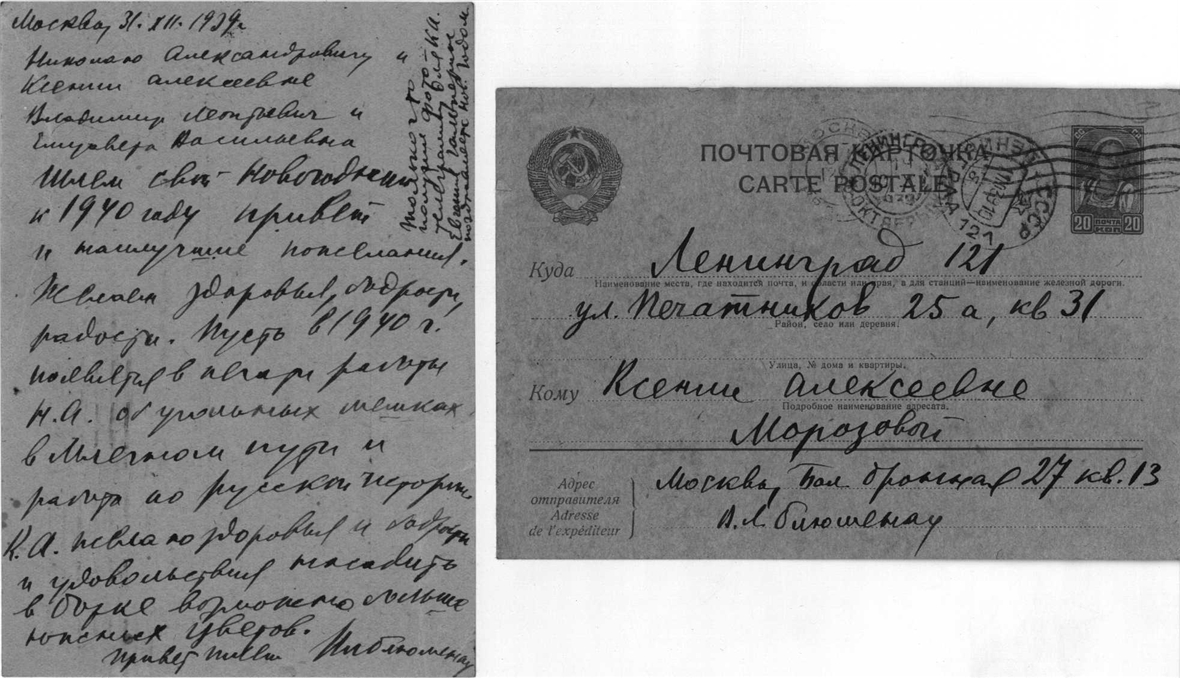 Москва, 31. XII. 1939г.
Николаю Александровичу и
Ксении Алексеевне
Владимир Леонтьевич и
Елизавета Васильевна
Шлем свой новогодний
к 1940 году привет
и наилучшие пожелания.
Желаем здоровья, бодрости,
радости. Пусть в 1940 г.
появятся в печати работы
Н.А. об угольных мешках
в Млечном пути и
работа по русской истории
К.А. желаю здоровья и бодрости
и удовольствия насадить
в Борке возможно больше
цветов.
Привет шлем Блюменау
Только что
получили фото
телеграмму
поздравляем с нов. годом.
ПОЧТОВАЯ КАРТОЧКА
CARTE POSTALE
121
СССР
20 ПОЧТА 20
КОП
Куда Ленинград 121
Наименование места, где находится почта, и области или края, а для станций—наименование железной дороги.
ул. Печатников 25а, кв 31
Район, село или деревня.
Улица, № дома и квартиры.
Кому Ксении Алексеевне
Подробное наименование адресата.
Морозовый
Адрес
отправителя
Adresse
de l'expéditeur
Москва, Бол. Бронная 27 кв. 13
В.Л. Блюменау